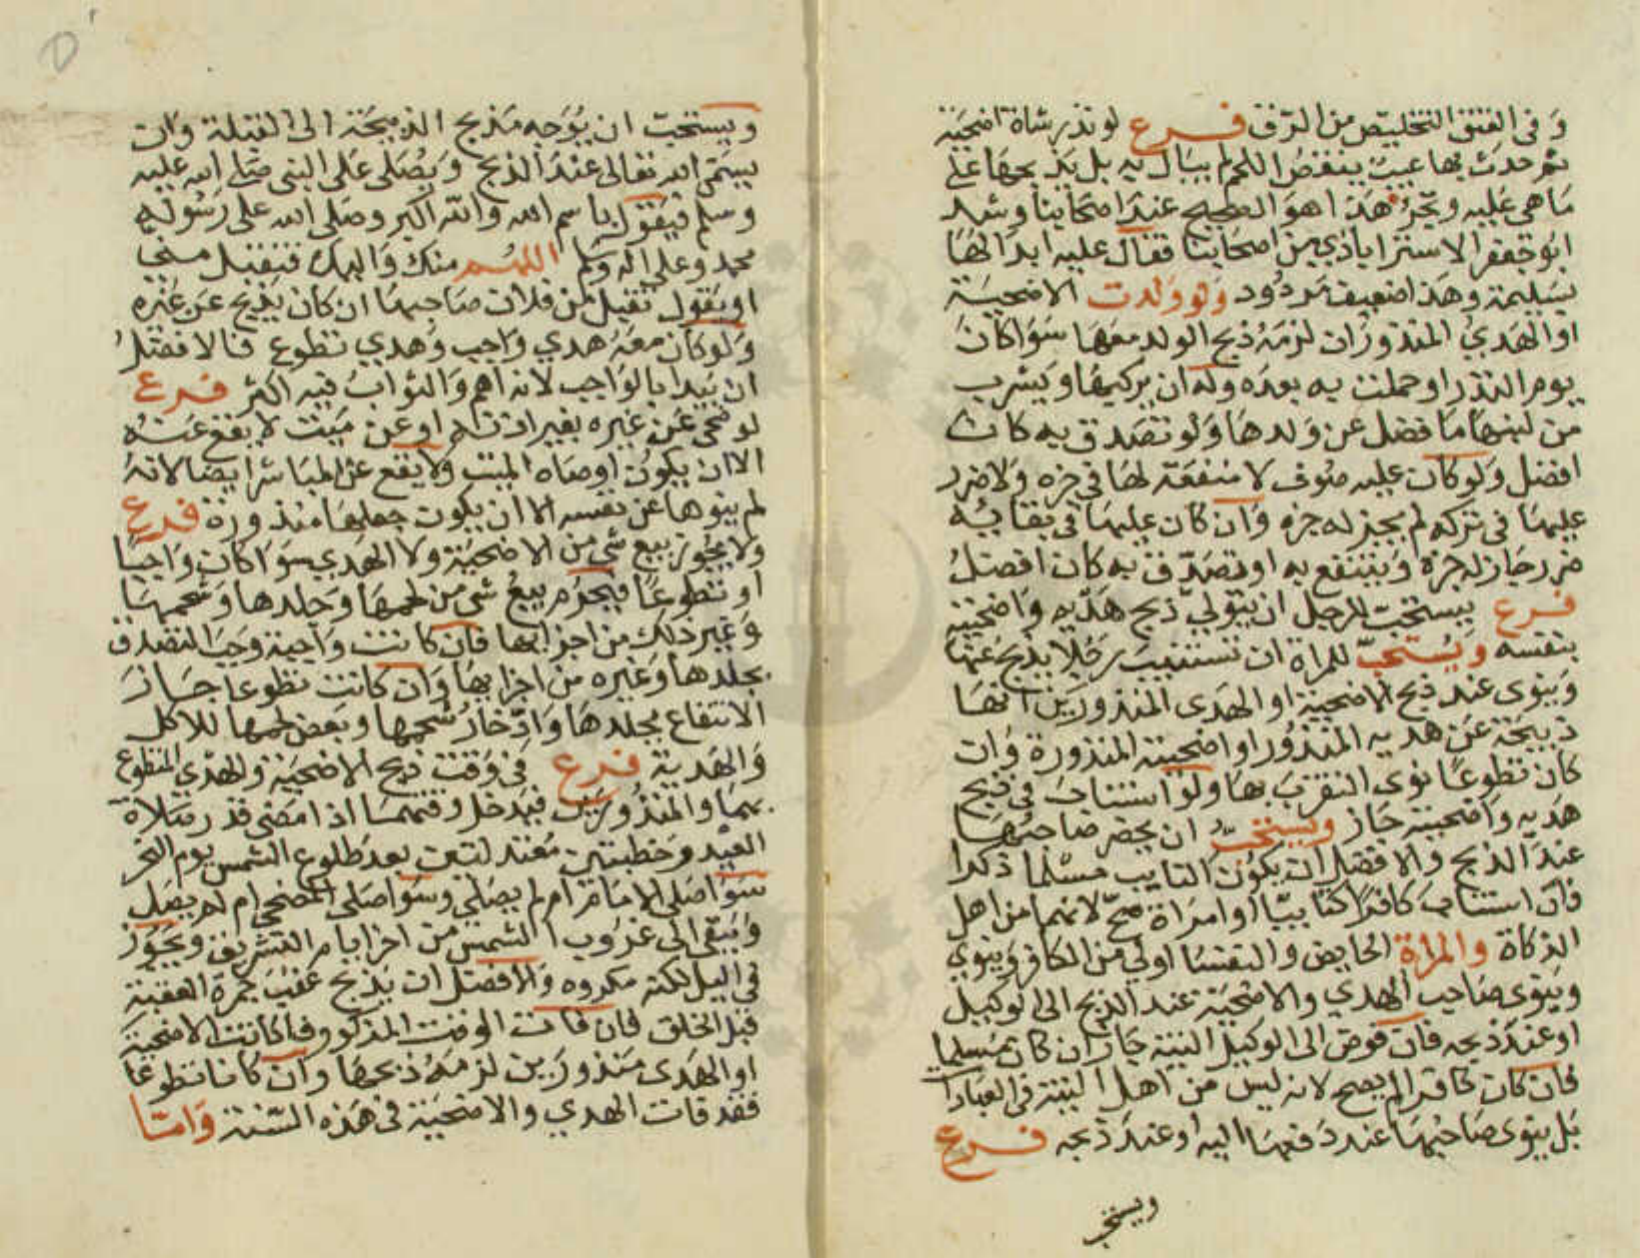 وفى العتق التخليص من الرق فرع لو نذر شاة اضحية
ثم حدث بها عيب ينقص اللحم لم يبال به بل يذبحها على
ما هي عليه وتجزئه هذا هو الصحيح عند اصحابنا وشد
ابو جعفر الاسترابادي من اصحابنا فقال عليه ابدالها
بسليمة وهذا ضعيف مردود ولو ولدت الاضحية
او الهدي المنذوران لزمه ذبح الولد معها سوا كان
يوم النذر او حملت به بعده وله ان يركبها ويشرب
من لبنها ما فضل عن ولدها ولو تصدق به كان
افضل ولو كان عليه صوف لا منفعة لها في جزه ولا ضرر
عليها في تركه لم يجز له جزه وان كان عليها في بقائه
ضرر جاز له جزه وينتفع به او تصدق به كان افضل
فرع يستحب للرجل ان يتولى ذبح هديه واضحيته
بنفسه ويستحب للمراة ان تستنيب رجلا يذبح عنها
وينوى عند ذبح الاضحية او الهدى المنذورين انها
ذبيحة عن هديه المنذور او اضحيته المنذورة وان
كان تطوعا نوى التقرب بها ولو استناب في ذبح
هديه واضحيته جاز ويستحب ان يحضر صاحبها
عند الذبح والافضل ان يكون النايب مسلما ذكرا
فان استناب كافرا كتابيا او امراة صح لانهما من اهل
الذكاة والمراة الحايض والنفسا اولى من الكافر وينوي
وينوى صاحب الهدي والاضحية عند الذبح الى لوكيل
او عند ذبحه فان فوض الى الوكيل النية جاز ان كان مسلما
فان كان كافرا لم يصح لانه ليس من اهل النية في العبادا
بل ينوى صاحبها عند دفعها اليه او عند ذبحه فرع
ويستحب
ويستحب ان يوجه مذبح الذبيحة الى القبلة وان
يسمى الله تعالى عند الذبح ويصلى على النبى صلى الله عليه
وسلم فيقول باسم الله والله اكبر وصلى الله على رسوله
محمد وعلى اله وسلم اللهم منك واليك فتقبل منى
او يقول تقبل من فلان صاحبها ان كان يذبح عن غيره
ولو كان معه هدي واجب وهدي تطوع فالافضل
ان يبدا بالواجب لانه اهم والثواب فيه اكثر فرع
لو ضحى عن غيره بغير اذنه او عن ميت لا يقع عنه
الا ان يكون اوصاه الميت ولا يقع عن المباشر ايضا لانه
لم ينوها عن نفسه الا ان يكون جعلها منذورة فرع
ولا يجوز بيع شي من الاضحية ولا الهدي سوا كان واجبا
او تطوعا فيحرم بيع شي من لحمها وجلدها وشحمها
وغير ذلك من اجزايها فان كانت واجبة وجب التصدق
بجلدها وغيره من اجزايها وان كانت تطوعا جاز
الانتفاع بجلدها وادخار شحمها وبعض لحمها للاكل
والهدية فرع في وقت ذبح الاضحية والهدي المتطوع
بهما والمنذورين فيدخل وقتهما اذا مضى قدر صلاة
العيد وخطبتين معتدلتين بعد طلوع الشمس يوم النحر
سوا صلى الامام ام لم يصلى وسوا صلى المضحى ام لم يصل
ويبقى الى غروب الشمس من اخر ايام التشريق ويجوز
في اليل لكنه مكروه والافضل ان يذبح عقب جمرة العقبة
قبل الحلق فان فات الوقت المذكور فان كانت الاضحية
او الهدى منذورين لزمه ذبحها وان كانا تطوعا
فقد فات الهدي والاضحية في هذه السنة واما